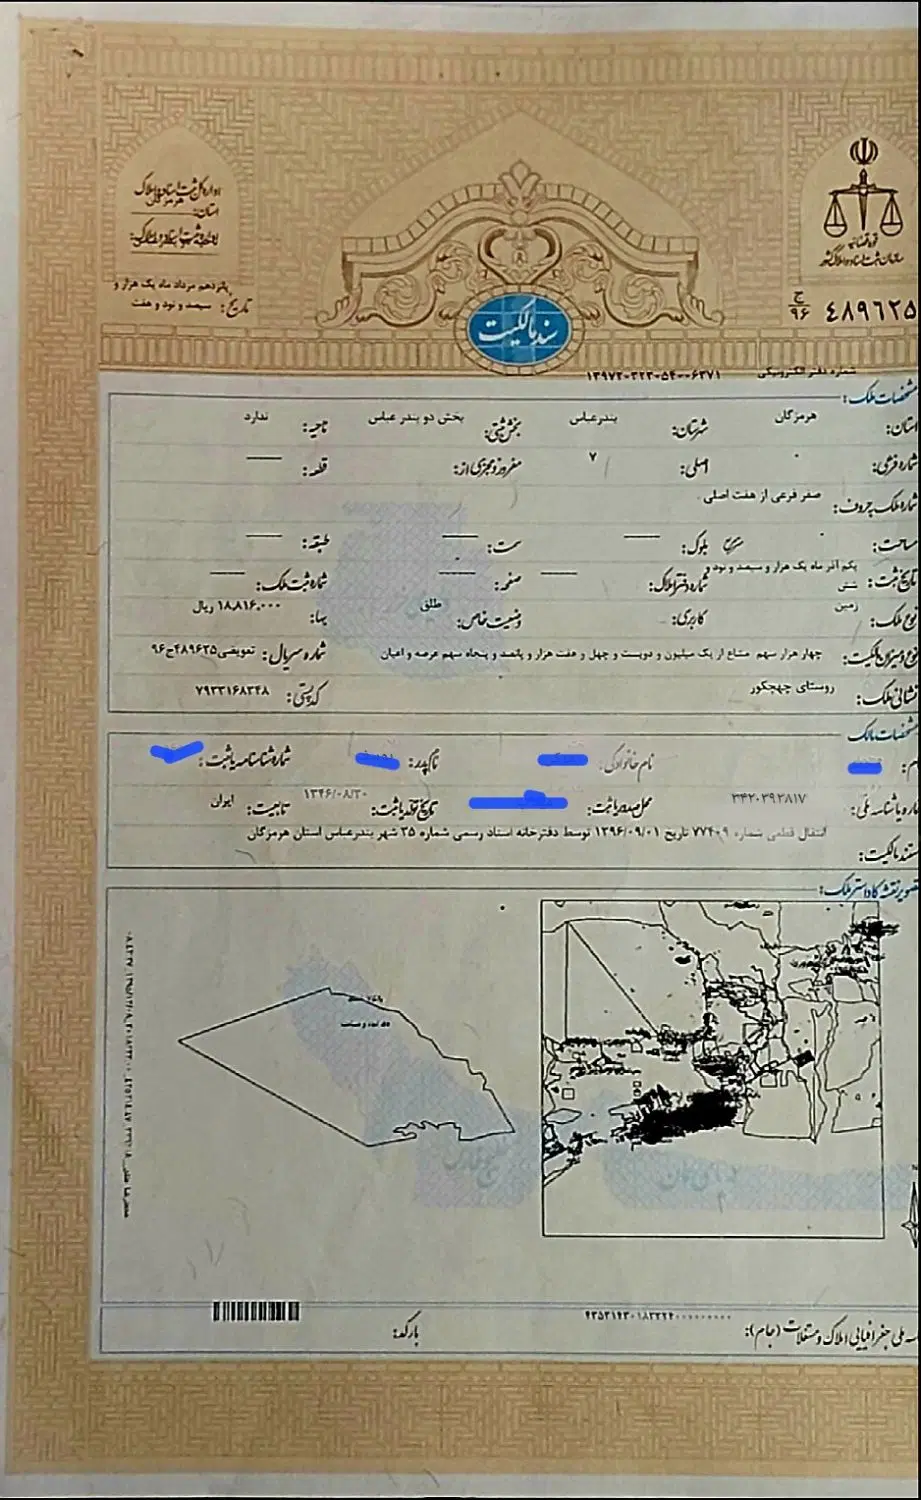 قوه قضائیه
سازمان ثبت اسناد و املاک کشور
اداره کل ثبت اسناد و املاک
استان: هرمزگان
تاریخ: پانزدهم مرداد ماه یک هزار و سیصد و نود و هفت
ج
۹۶
۴۸۹۶۲۵
سند مالکیت
شماره دفتر الکترونیکی ۱۳۹۷۲۰۳۲۳۰۵۴۰۰۰۶۳۷۱
مشخصات ملک:
استان: هرمزگان شهرستان: بندرعباس بخش ثبتی: بخش دو بندر عباس ناحیه: ندارد
شماره فرعی: ۰ اصلی: ۷ مفروز و مجزی از: قطعه:
شماره ملک بحروف: صفر فرعی از هفت اصلی
مساحت: بلوک: سمت: طبقه:
تاریخ ثبت: یکم آذر ماه یک هزار و سیصد و نود و شش شماره دفتر املاک: صفحه: شماره ثبت ملک:
نوع ملک: زمین کاربری: وضعیت خاص: طلق بهاء: ۱۸،۸۱۶،۰۰۰ ریال
نوع و میزان مالکیت: چهار هزار سهم مشاع از یک میلیون و دویست و چهل و هفت هزار و پانصد و پنجاه سهم عرصه و اعیان شماره سریال: تعویضی ۴۸۹۶۲۵ج۹۶
نشانی ملک: روستای چهچکور کدپستی: ۷۹۳۳۱۶۸۳۴۸
مشخصات مالک:
نام: نام خانوادگی: نام پدر: شماره شناسنامه یا ثبت:
شماره یا شناسه ملی: ۳۴۲۰۳۹۲۸۱۷ محل صدور یا ثبت: تاریخ تولد یا ثبت: ۱۳۴۶/۰۸/۲۰ تابعیت: ایران
مستند مالکیت: انتقال قطعی شماره ۷۷۴۰۹ تاریخ ۱۳۹۶/۰۹/۰۱ توسط دفترخانه اسناد رسمی شماره ۳۵ شهر بندرعباس استان هرمزگان
تصویر نقشه کاداستر ملک:
خلیج فارس
دریای عمان
شناسه ملی جغرافیایی املاک و مستغلات (جام):
بارکد: